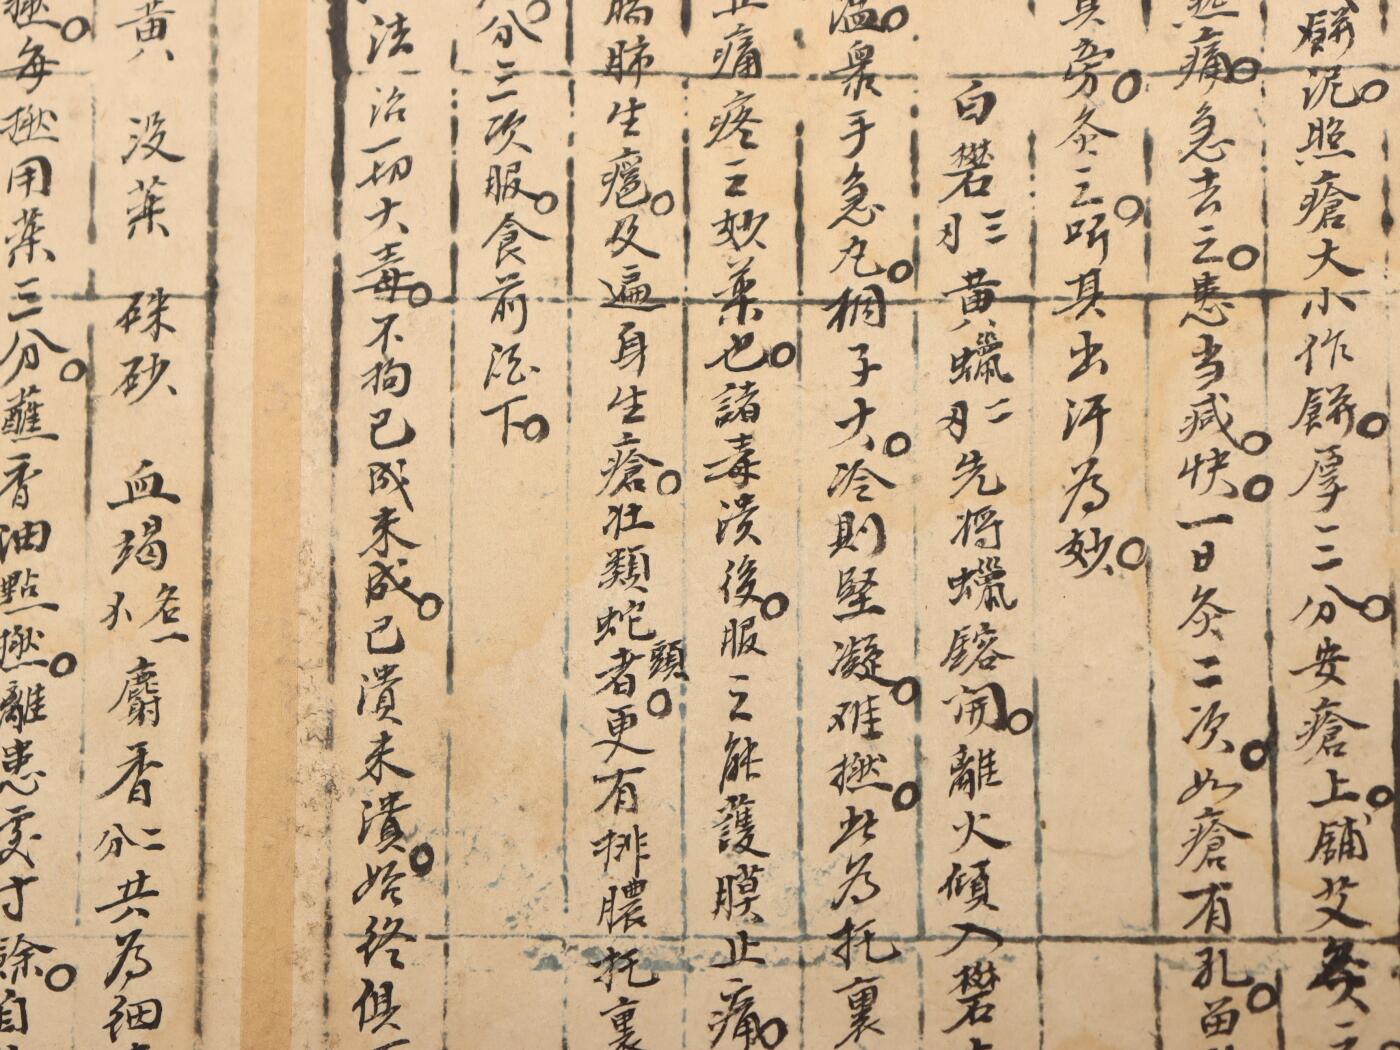 餅泥照瘡大小作餅厚二分安瘡上舖艾灸之
痛急去之患当减快一日灸二次如瘡有孔
其旁灸之听其出汗為妙
白礬三刄黃蠟二刄先将蠟鎔開離火傾入礬
温衆手急丸桐子大冷則堅凝难撚此為托裏
止痛疼之妙薬也諸毒潰後服之能護膜止痛
肺生癰及遍身生瘡壮類蛇頭者更有排膿托裏
分三次服食前酒下
法治一切大毒不拘已成未成已潰未潰始終俱
黃 没薬 硃砂 血竭各一 麝香二分共為细
每撚用薬三分蘸香油點撚離患處寸餘自